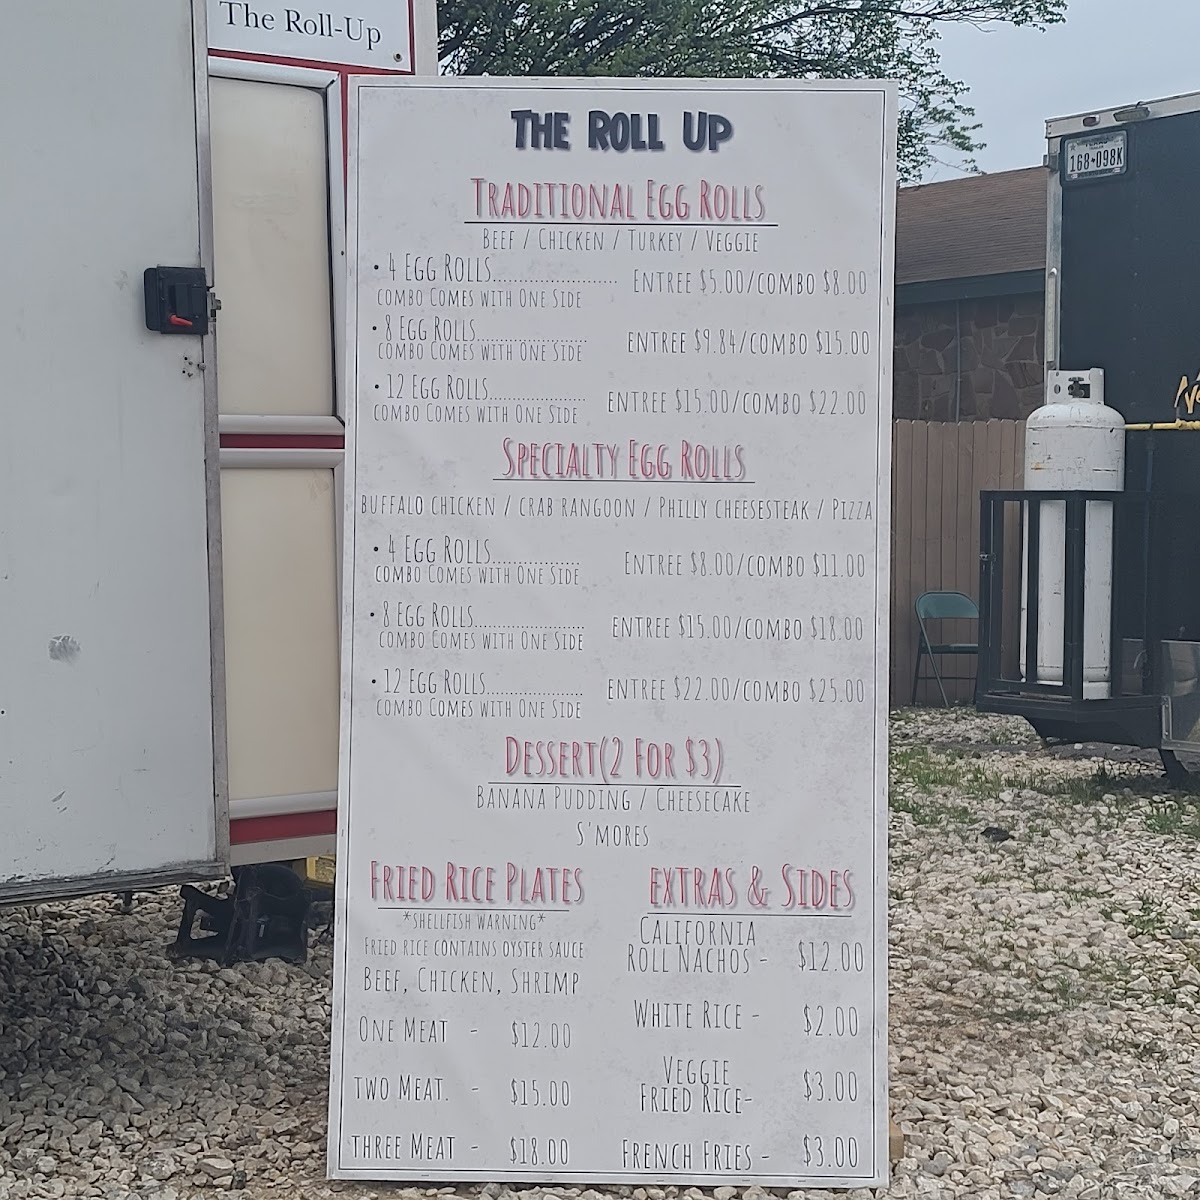 The Roll-Up
THE ROLL UP
TRADITIONAL EGG ROLLS
BEEF / CHICKEN / TURKEY / VEGGIE
• 4 EGG ROLLS..................... ENTREE $5.00/COMBO $8.00
COMBO COMES WITH ONE SIDE
• 8 EGG ROLLS................... ENTREE $9.84/COMBO $15.00
COMBO COMES WITH ONE SIDE
• 12 EGG ROLLS................. ENTREE $15.00/COMBO $22.00
COMBO COMES WITH ONE SIDE
SPECIALTY EGG ROLLS
BUFFALO CHICKEN / CRAB RANGOON / PHILLY CHEESESTEAK / PIZZA
• 4 EGG ROLLS............... ENTREE $8.00/COMBO $11.00
COMBO COMES WITH ONE SIDE
• 8 EGG ROLLS................... ENTREE $15.00/COMBO $18.00
COMBO COMES WITH ONE SIDE
• 12 EGG ROLLS................. ENTREE $22.00/COMBO $25.00
COMBO COMES WITH ONE SIDE
DESSERT(2 FOR $3)
BANANA PUDDING / CHEESECAKE
S'MORES
FRIED RICE PLATES
*SHELLFISH WARNING*
FRIED RICE CONTAINS OYSTER SAUCE
BEEF, CHICKEN, SHRIMP
ONE MEAT - $12.00
TWO MEAT. - $15.00
THREE MEAT - $18.00
EXTRAS & SIDES
CALIFORNIA
ROLL NACHOS - $12.00
WHITE RICE - $2.00
VEGGIE
FRIED RICE- $3.00
FRENCH FRIES - $3.00
168-098K